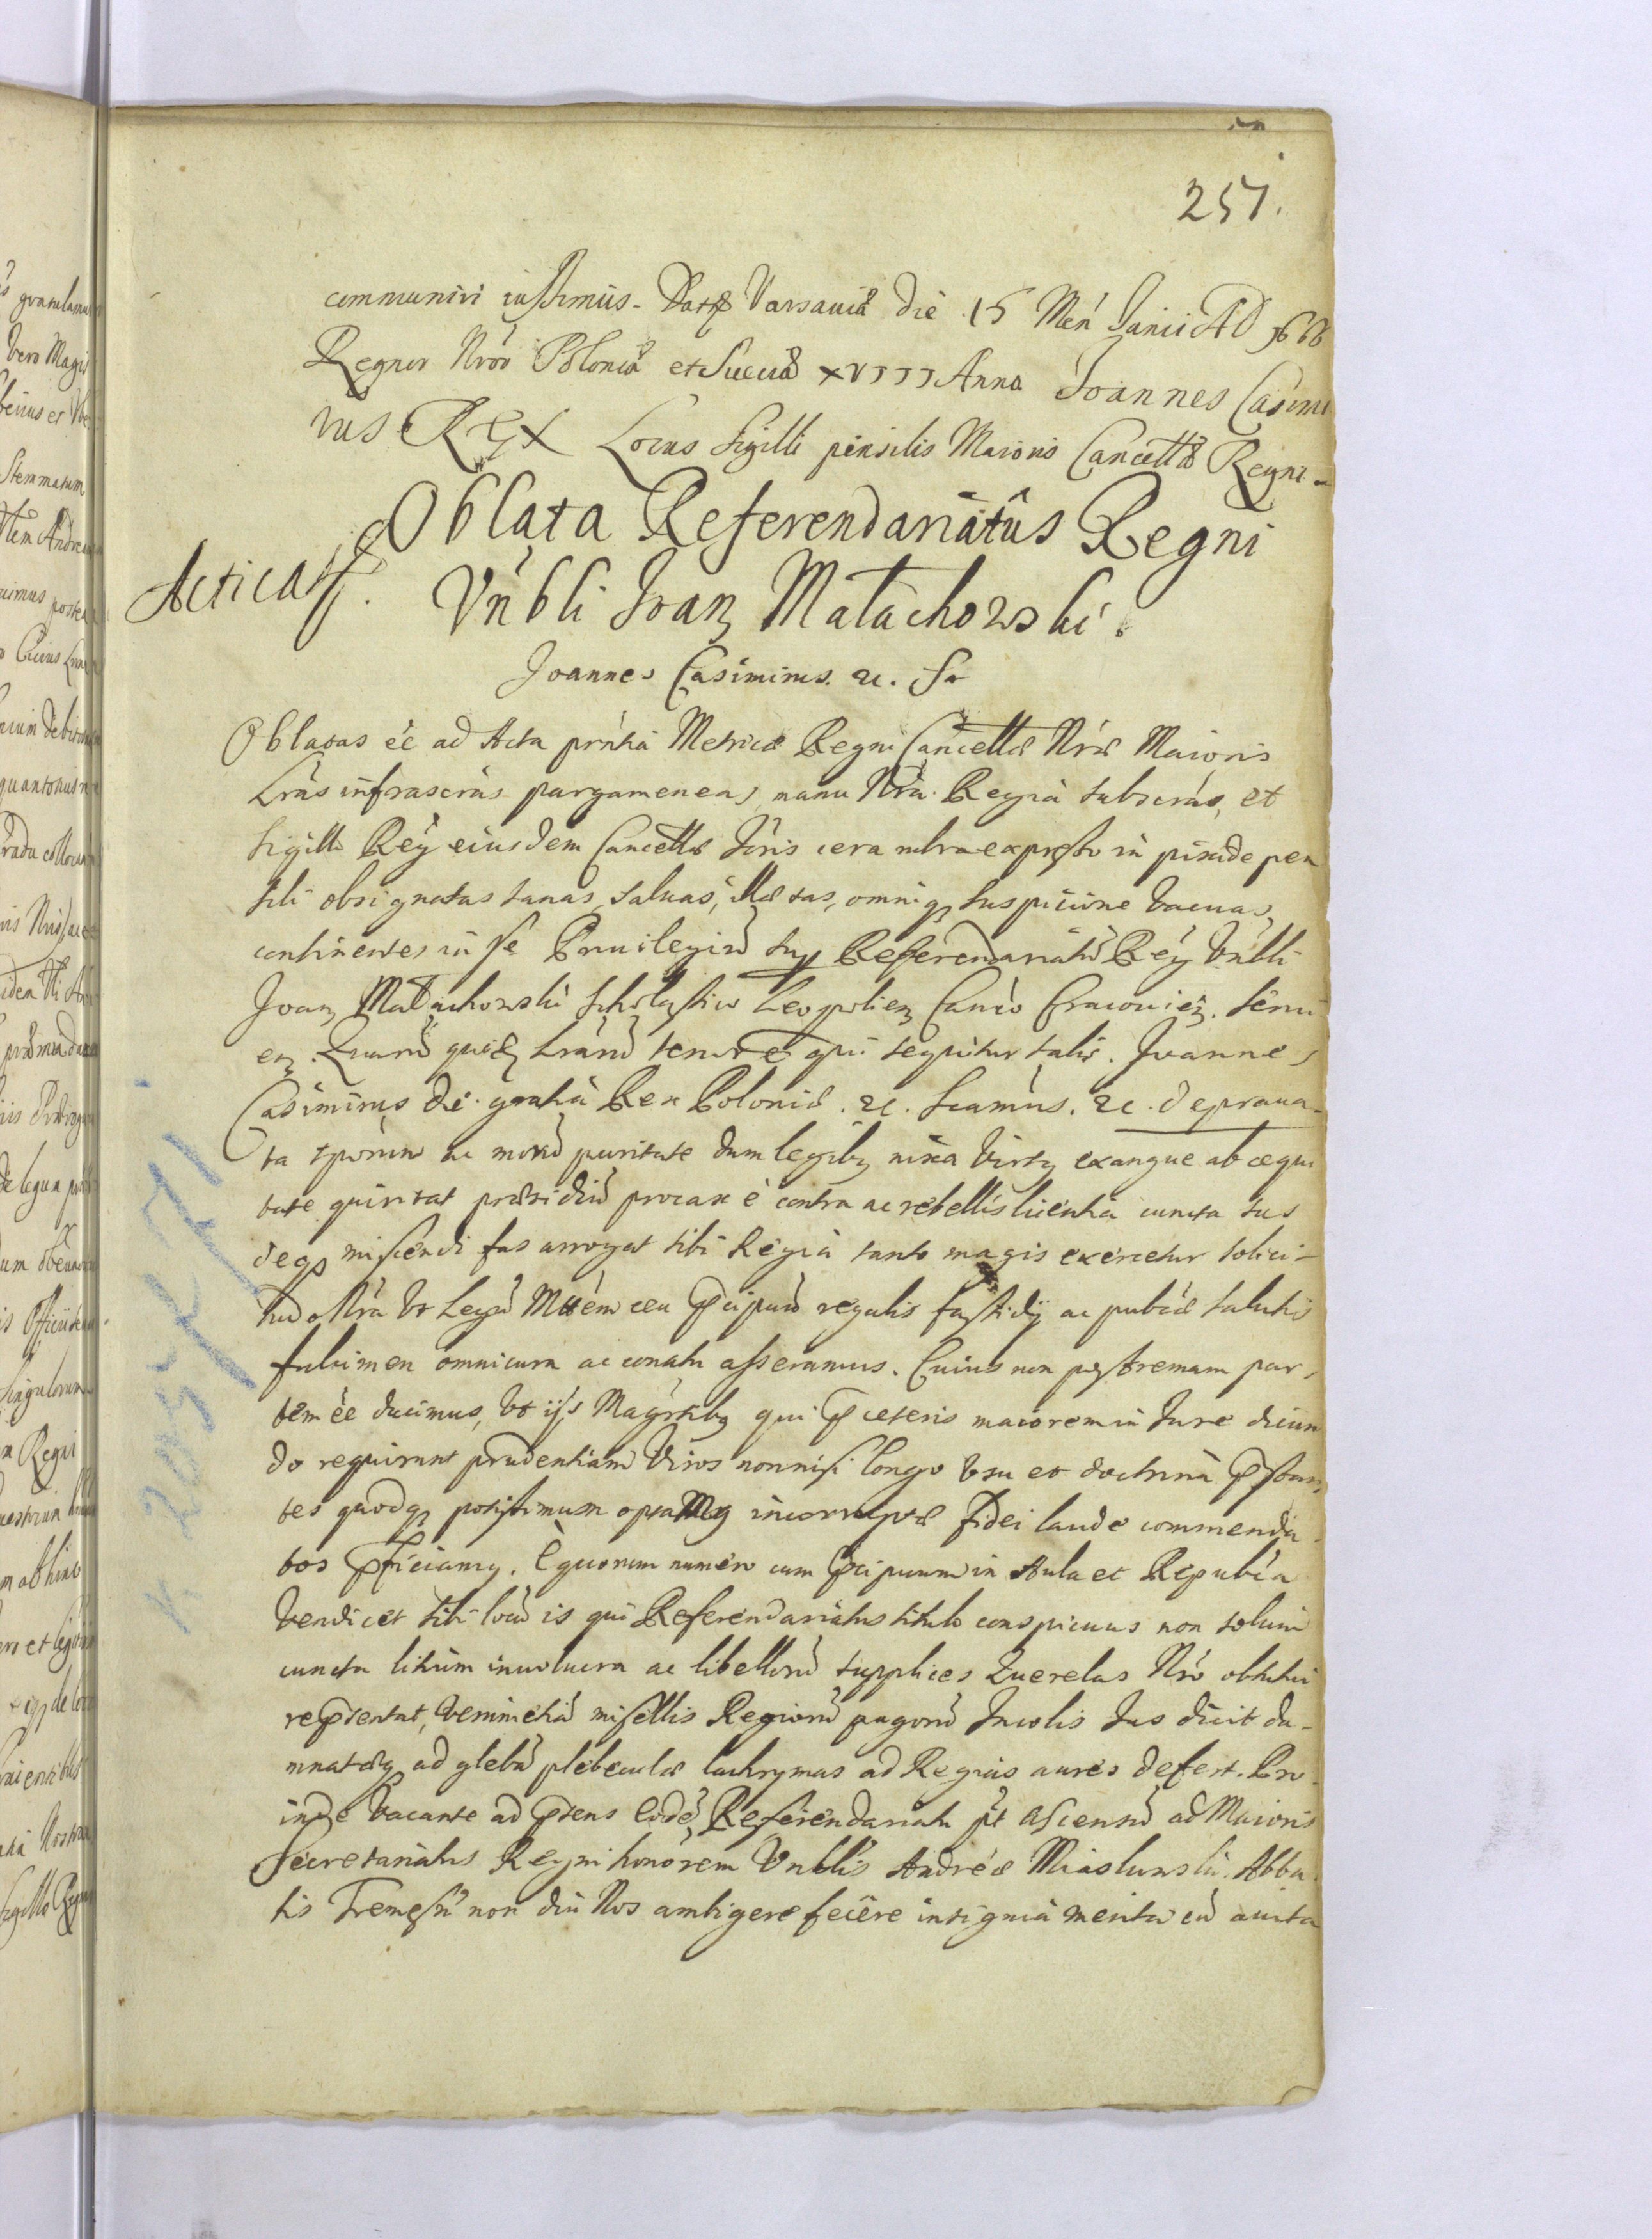 257.
communiri iussimus. Datt Varsaviæ die 15 Men Junii AD 1666
Regnor Nror Poloniæ et Sueciæ XVIII Anno Joannes Casimi
rus REX Locus Sigilli pensilis Maioris Cancellæ Regni
Oblata Referendariatus Regni
Acticat.
Vnbli Joan Małachowski.
Joannes Casimirus. &c. Sr
Oblatas ee ad Acta prntia Metricæ Regni Cancellæ Nræ Maioris
Lras infrascras pargameneas, manu Nra Regia subscras, et
Sigillo Reg eiusdem Cancellæ cera rubra expresso in pixide pen
sili obsignatas sanas, saluas, illæsas, omniq suspicione vacuas,
continentes in se Priuilegiu sup Referendariatu Reg Vnbli
Joan Małachowski Scholastico Leopolien Canco Cracovien. seru
en. Quaru quid Lraru tenore qui sequitur talis. Joannes
Casimirus Dei gratia Rex Poloniæ. &c. Scamus. &c. depraua-
ta tporum ac moru puritate dum legibq nixa Virtq exangue ab æqui
tate quiritat præsidiu procax è contra ac rebellis licentia cuncta sus
deq miscendi fas arrogat sibi Regia tanto magis exercetur solici-
tudo Nra Vt Legu Mttem ceu pcipuu regalis fastidy ac publcæ salutis
fulcimen omni cura ac conatu asseramus. Cuius non postremam par,
tem ee ducimus, Vt ijs Magrtibq qui p ceteris maiorem in Jure dicun
do requirunt prudentiam Viros non nisi longo Vsu et doctrina pstan,
tes quodq potissimum optamq incorruptæ fidei laude commenda
tos pficiamq. E quorum numero cum pcipuum in Aula et Republca
Vendicet sibi locu is qui Referendariatus titulo conspicuus non solum
cuncta litium inuolucra ac libelloru supplices Querelas Nro obtutui
repsentat, Verum etia misellis Regioru pagoru Incolis Jus dicit da-
mnatæq ad glebu plebeculæ lachrymas ad Regias aures defert. Pro
inde Vacante ad psens eode Referendariatu pt Ascensu ad Maioris
Secretariatus Regni honorem Vnblis Andreæ Miaskowski Abba
tis Tremesn non diu Nos ambigere fecere insignia merita cu auita